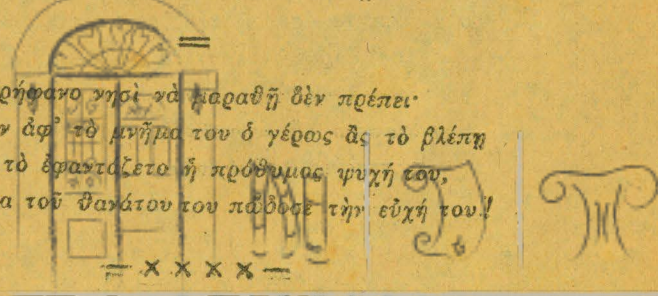 ρήφανο νησὶ νὰ μαραθῇ δὲν πρέπει·
ν ἀφ' τὸ μνῆμα του ὁ γέρως ἂς τὸ βλέπῃ
τὸ ἐφαντάζετο ἡ πρόθυμος ψυχή του,
α τοῦ θανάτου του πὤδοσε τὴν εὐχή του!
= × × × × =